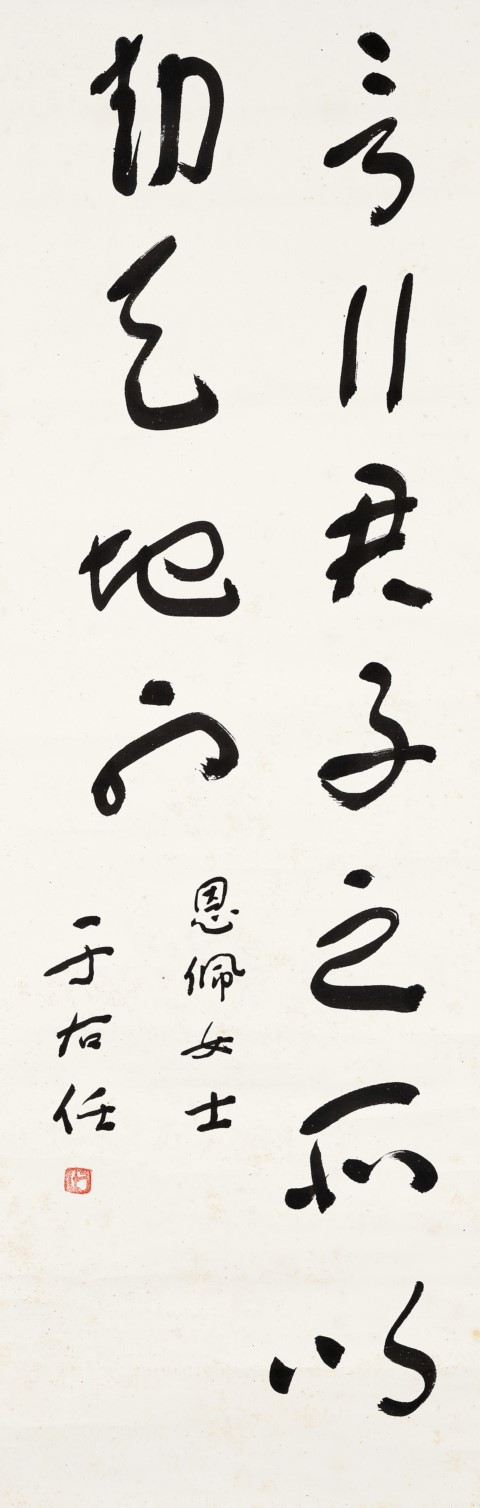 言行君子之所以
動天地也
恩佩女士
于右任